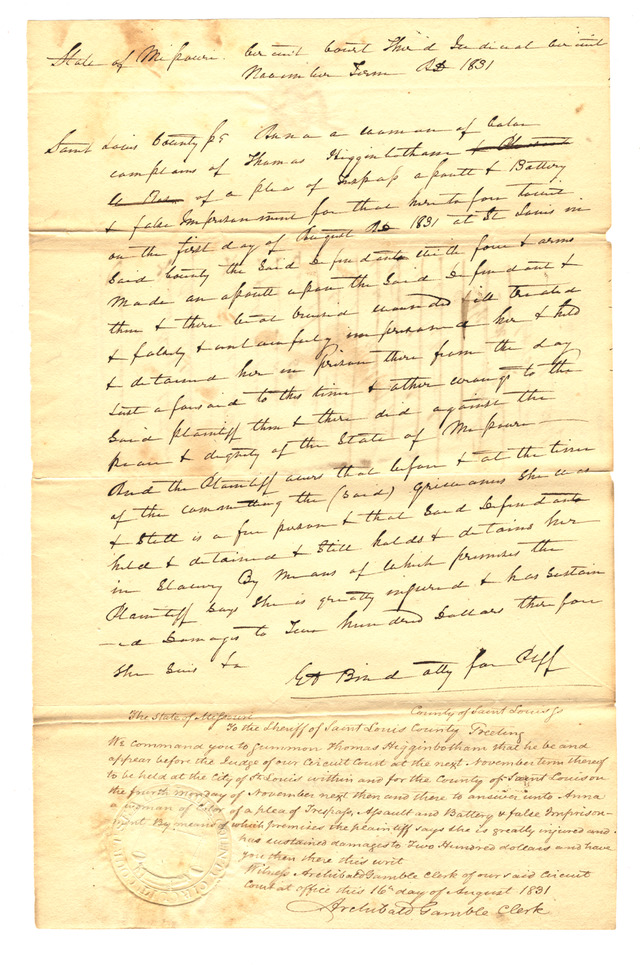 State of Missouri. Circuit Court Third Judicial Circuit
November Term AD 1831
Saint Louis County ss Anna a woman of Color
complains of Thomas Higginbotham &
of a plea of Trespass assault & Battery
& false Imprisonment for that heretofore towit
on the first day of August AD 1831 at St Louis in
Said County the Said Defendants with force & arms
Made an assault upon the Said Defendant &
then & there beat bruised wounded & ill treated
& falsely & unlawfully imprisoned her & held
& detained her in prison there from the day
Last aforesaid to this time & other wrongs to the
Said plaintiff then & there did against the
peace & dignity of the State of Missouri—
And the Plaintiff avers that before & at the time
of the committing the (Said) Grievances She was
& Still is a free person & that Said Defendants
held & detained & Still holds & detains her
in Slavery By Means of Which premises the
Plaintiff Says She is greatly injured & has Sustain
—ed Damages to Two hundred Dollars therefore
She Sues &c
atty for Plff
The State of Missouri County of Saint Louis ss
To the Sheriff of Saint Louis County Greeting
We command you to Summon Thomas Higginbotham that he be and
appear before the Judge of our Circuit Court at the next November term thereof
to be held at the City of St Louis within and for the County of Saint Louis on
the fourth Monday of November next then and there to answer unto Anna
a woman of Color of a plea of Trespass, Assault and Battery & false Imprison-
ment By means of which premises the plaintiff says she is greatly injured and
has sustained damages to Two Hundred dollars and have
you then there this writ
Witness Archibald Gamble Clerk of our said Circuit
Court at office this 16th day of August 1831
Archibald Gamble Clerk